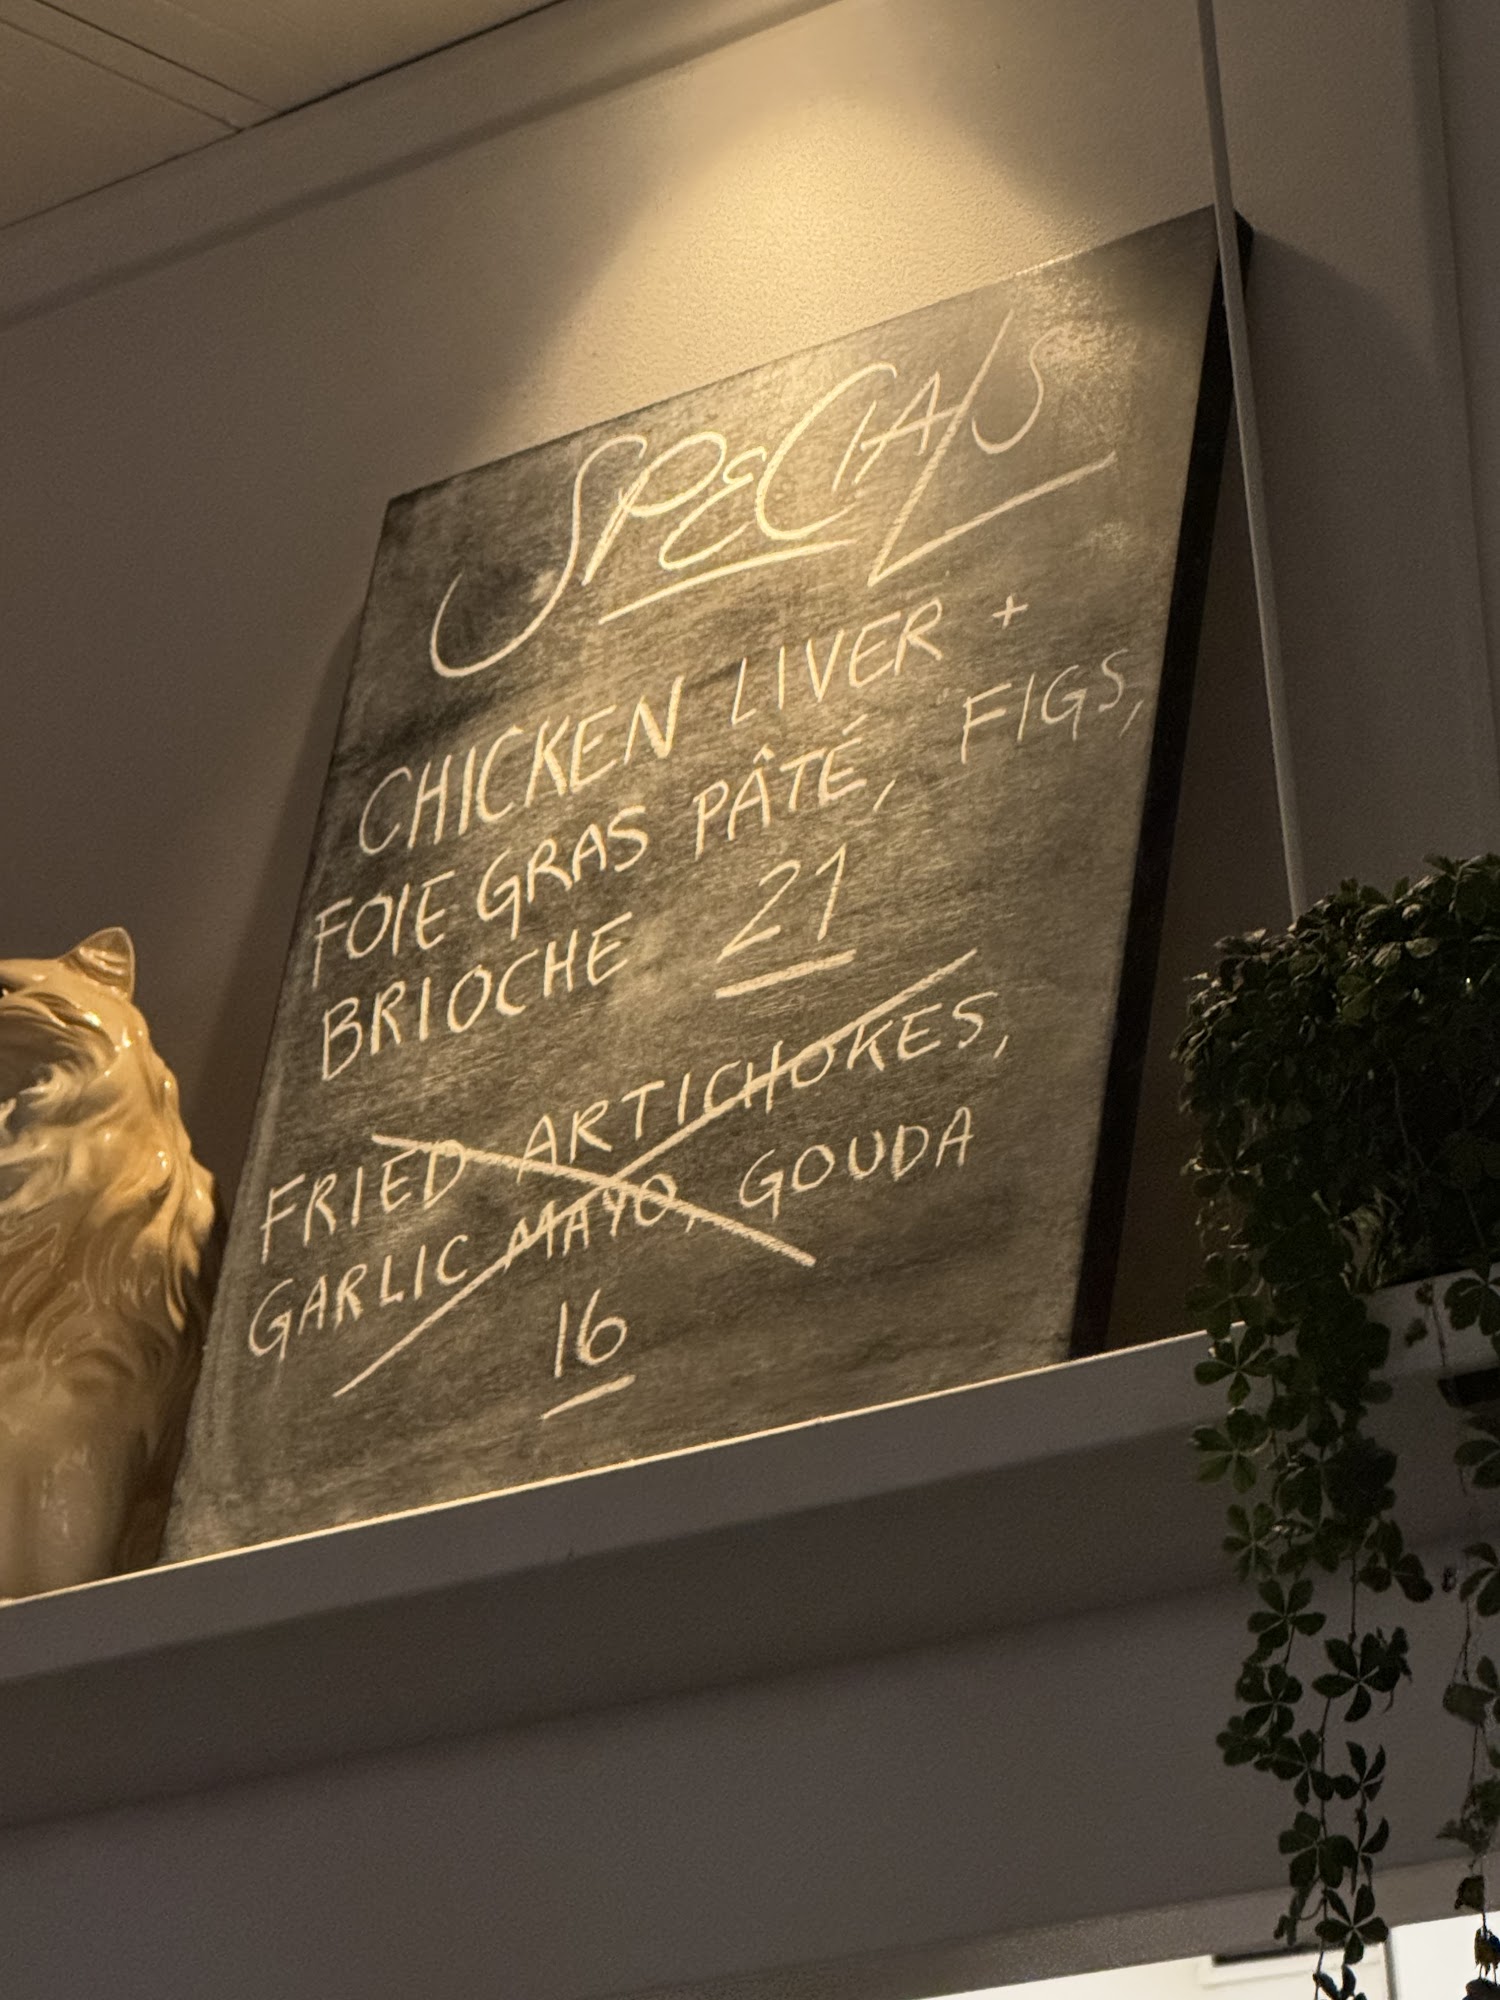 SPECIALS
CHICKEN LIVER +
FOIE GRAS PÂTÉ, FIGS,
BRIOCHE 21
FRIED ARTICHOKES,
GARLIC MAYO, GOUDA
16